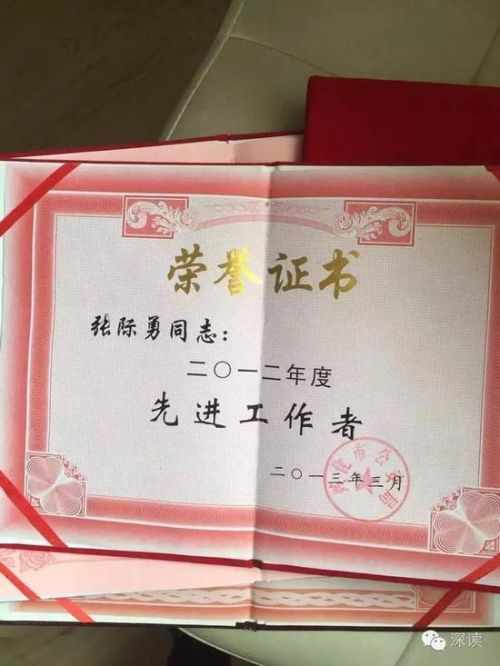 荣誉证书
张际勇同志：
二〇一二年度
先进工作者
二〇一三年三月
深读